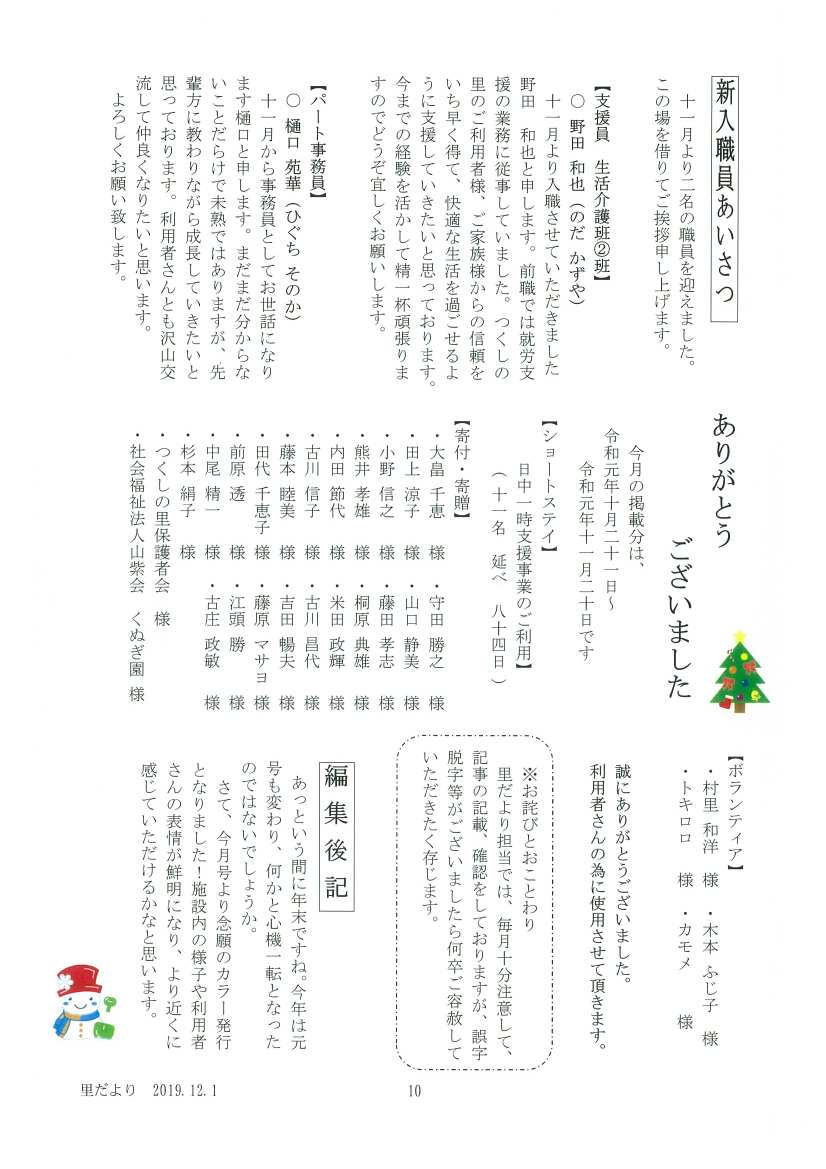 新入職員あいさつ
十一月より二名の職員を迎えました。
この場を借りてご挨拶申し上げます。
【支援員　生活介護班②班】
○ 野田 和也（のだ かずや）
十一月より入職させていただきました
野田　和也と申します。前職では就労支
援の業務に従事していました。つくしの
里のご利用者様、ご家族様からの信頼を
いち早く得て、快適な生活を過ごせるよ
うに支援していきたいと思っております。
今までの経験を活かして精一杯頑張りま
すのでどうぞ宜しくお願いします。
【パート事務員】
○ 樋口 苑華（ひぐち そのか）
十一月から事務員としてお世話になり
ます樋口と申します。まだまだ分からな
いことだらけで未熟ではありますが、先
輩方に教わりながら成長していきたいと
思っております。利用者さんとも沢山交
流して仲良くなりたいと思います。
よろしくお願い致します。
ありがとう
ございました
今月の掲載分は、
令和元年十月二十一日～
令和元年十一月二十日です
【ショートステイ】
日中一時支援事業のご利用】
（ 十一名　延べ　八十四日 ）
【寄付・寄贈】
・大畠 千恵　様　・守田 勝之　様
・田上 涼子　様　・山口 静美　様
・小野 信之　様　・藤田 孝志　様
・熊井 孝雄　様　・桐原 典雄　様
・内田 節代　様　・米田 政輝　様
・古川 信子　様　・古川 昌代　様
・藤本 睦美　様　・吉田 暢夫　様
・田代 千恵子　様　・藤原 マサヨ　様
・前原 透　様　・江頭 勝　様
・中尾 精一　様　・古庄 政敏　様
・杉本 絹子　様
・つくしの里保護者会　様
・社会福祉法人山紫会　くぬぎ園　様
【ボランティア】
・村里 和洋　様　・木本 ふじ子　様
・トキロロ　様　・カモメ　様
誠にありがとうございました。
利用者さんの為に使用させて頂きます。
※お詫びとおことわり
里だより担当では、毎月十分注意して、
記事の記載、確認をしておりますが、誤字
脱字等がございましたら何卒ご容赦して
いただきたく存じます。
編集後記
あっという間に年末ですね。今年は元
号も変わり、何かと心機一転となった
のではないでしょうか。
さて、今月号より念願のカラー発行
となりました！施設内の様子や利用者
さんの表情が鮮明になり、より近くに
感じていただけるかなと思います。
里だより　2019.12.1
10